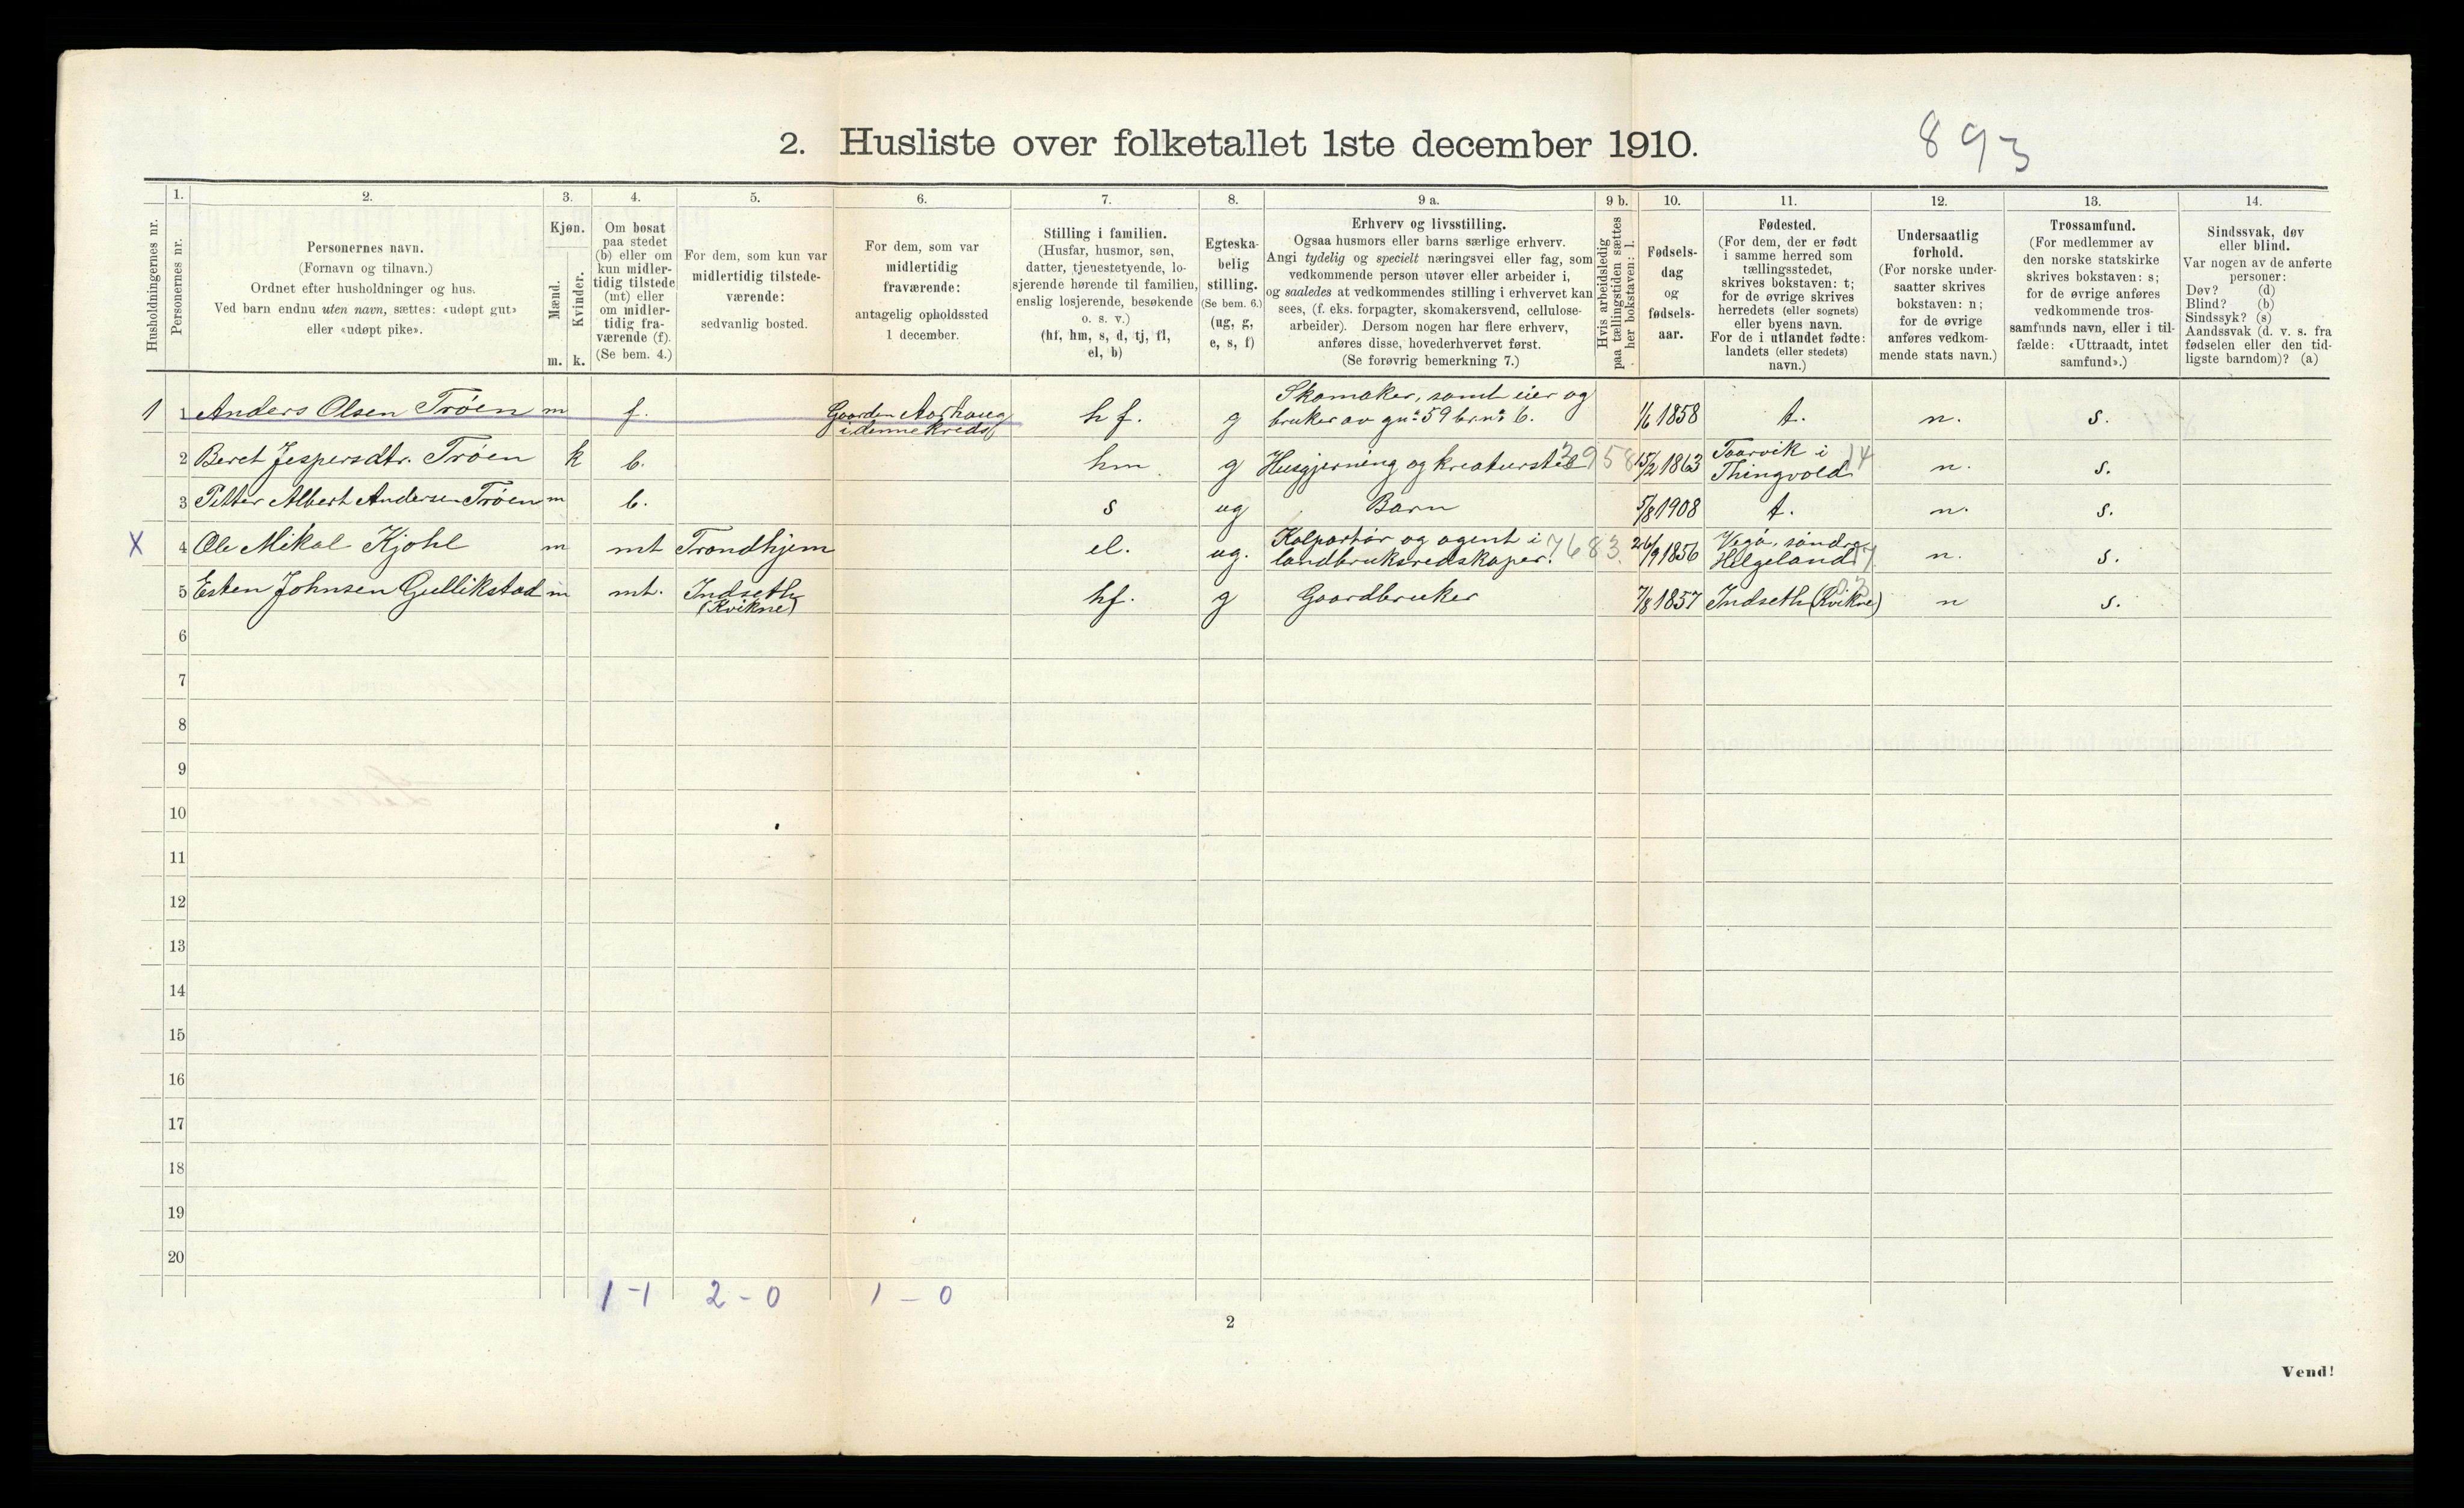 893
2. Husliste over folketallet 1ste december 1910.
Husholdningernes nr.
1.
Personernes nr.
2.
Personernes navn.
(Fornavn og tilnavn.)
Ordnet efter husholdninger og hus.
Ved barn endnu uten navn, sættes: «udøpt gut»
eller «udøpt pike».
3.
Kjøn.
Mænd.
Kvinder.
m. k.
4.
Om bosat
paa stedet
(b) eller om
kun midler-
tidig tilstede
(mt) eller
om midler-
tidig fra-
værende (f).
(Se bem. 4.)
5.
For dem, som kun var
midlertidig tilstede-
værende:
sedvanlig bosted.
6.
For dem, som var
midlertidig
fraværende:
antagelig opholdssted
1 december.
7.
Stilling i familien.
(Husfar, husmor, søn,
datter, tjenestetyende, lo-
sjerende hørende til familien,
enslig losjerende, besøkende
o. s. v.)
(hf, hm, s, d, tj, fl,
el, b)
8.
Egteska-
belig
stilling.
(Se bem. 6.)
(ug, g,
e, s, f)
9 a.
Erhverv og livsstilling.
Ogsaa husmors eller barns særlige erhverv.
Angi tydelig og specielt næringsvei eller fag, som
vedkommende person utøver eller arbeider i,
og saaledes at vedkommendes stilling i erhvervet kan
sees, (f. eks. forpagter, skomakersvend, cellulose-
arbeider). Dersom nogen har flere erhverv,
anføres disse, hovederhvervet først.
(Se forøvrig bemerkning 7.)
9 b.
Hvis arbeidsledig
paa tællingstiden sættes
her bokstaven: l.
10.
Fødsels-
dag
og
fødsels-
aar.
11.
Fødested.
(For dem, der er født
i samme herred som
tællingsstedet,
skrives bokstaven: t;
for de øvrige skrives
herredets (eller sognets)
eller byens navn.
For de i utlandet fødte:
landets (eller stedets)
navn.)
12.
Undersaatlig
forhold.
(For norske under-
saatter skrives
bokstaven: n;
for de øvrige
anføres vedkom-
mende stats navn.)
13.
Trossamfund.
(For medlemmer av
den norske statskirke
skrives bokstaven: s;
for de øvrige anføres
vedkommende tros-
samfunds navn, eller i til-
fælde: «Uttraadt, intet
samfund».)
14.
Sindssvak, døv
eller blind.
Var nogen av de anførte
personer:
Døv? (d)
Blind? (b)
Sindssyk? (s)
Aandssvak (d. v. s. fra
fødselen eller den tid-
ligste barndom)? (a)
1 1 Anders Olsen Trøen m f. Gaarden Aarhaug i denne kreds hf. g Skomaker, samt eier og bruker av gn: 59 br.n: 6. 1/6 1858 t. n. s.
2 Beret Jespersdtr. Trøen k b. hm g Husgjerning og kreaturstel 3958 15/2 1863 Taarvik i Thingvold 14 n. s.
3 Petter Albert Andersen Trøen m b. s ug Barn 5/8 1908 t. n. s.
X 4 Ole Mikal Kjøhl m mt Trondhjem el. ug. Kolportør og agent i landbruksredskaper. 7683 26/9 1856 Vegø, søndre Helgeland 17 n. s.
5 Esten Johnsen Gullikstad m mt. Indseth (Kvikne) hf. g Gaardbruker 7/8 1857 Indseth (Kvikne) n s.
6
7
8
9
10
11
12
13
14
15
16
17
18
19
20
1-1 2-0 1-0
2
Vend!